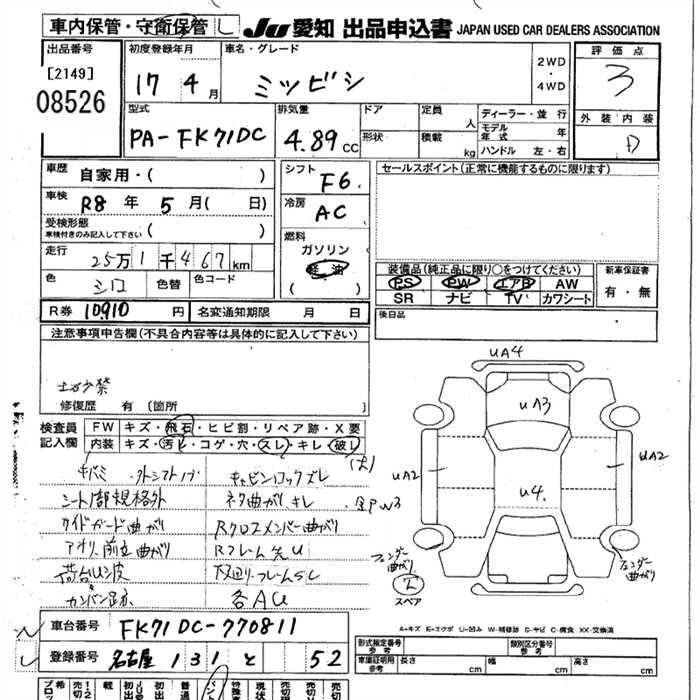 車内保管・守衛保管 し JU 愛知 出品申込書 JAPAN USED CAR DEALERS ASSOCIATION
出品番号 [2149] 08526
初度登録年月 17 4月
車名・グレード ミツビシ
2WD・4WD
評価点 3
外装 内装 D
型式 PA-FK71DC
排気量 4.89cc
ドア 形状
定員 人 積載 kg
ディーラー・並行
モデル年式 年
ハンドル 左・右
車歴 自家用・( )
車検 R8年 5月( 日)
受検形態 車検付きのみ記入して下さい ( )
走行 25万1千467km
色 シロ 色替 色コード
R券 10910円 名変通知期限 月 日
シフト F6
冷房 AC
燃料 ガソリン 軽油 ( )
セールスポイント(正常に機能するものに限ります)
装備品(純正品に限り○をつけてください)
PS PW エアB AW
SR ナビ TV カワシート
新車保証書 有・無
後日品
注意事項申告欄(不具合内容等は具体的に記入して下さい)
修復歴 有(箇所 )
検査員記入欄
FW キズ・飛石・ヒビ割・リペア跡・X要
内装 キズ・汚レ・コゲ・穴・スレ・キレ・破レ
(大)
キバミ 外シフトノブ キャビンロックズレ
シート1部規格外 ネタ曲がり キレ
サイドガード曲がり Rクロスメンバー曲がり
アオリ、前立曲がり Rフレーム先U
荷台U、波 下廻り・フレームSし
カンバン跡 各AU
UA4
UA3
UA2
U4.
UA2
フェンダー曲がり
フェンダー曲がり
スペア
A-キズ E-エクボ U-凹み W-補修跡 S-サビ C-腐食 XX-交換済
車台番号 FK71DC-770811
登録番号 名古屋 131 と 52
形式指定番号 参考 類別区分番号 参考
車庫証明用参考 長さ cm 幅 cm 高さ cm